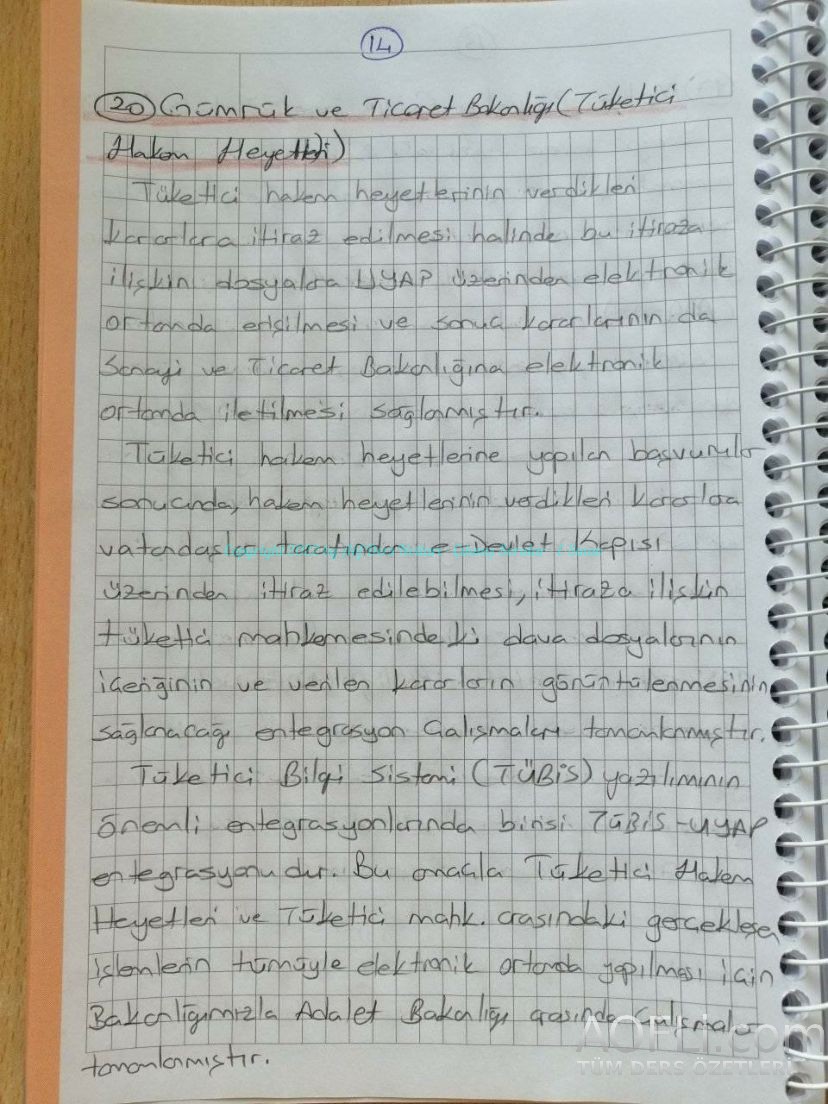 14
20 Gümrük ve Ticaret Bakanlığı (Tüketici
Hakem Heyetleri)
Tüketici hakem heyetlerinin verdikleri
kararlara itiraz edilmesi halinde bu itiraza
ilişkin dosyalara UYAP üzerinden elektronik
ortamda erişilmesi ve sonuç kararlarının da
Sanayi ve Ticaret Bakanlığına elektronik
ortamda iletilmesi sağlanmıştır.
Tüketici hakem heyetlerine yapılan başvurular
sonucunda, hakem heyetlerinin verdikleri kararlara
vatandaşlar tarafından e-Devlet Kapısı
üzerinden itiraz edilebilmesi, itiraza ilişkin
tüketici mahkemesindeki dava dosyalarının
içeriğinin ve verilen kararların görüntülenmesinin
sağlanacağı entegrasyon çalışmaları tamamlanmıştır.
Tüketici Bilgi Sistemi (TÜBİS) yazılımının
önemli entegrasyonlarında birisi TÜBİS-UYAP
entegrasyonudur. Bu amaçla Tüketici Hakem
Heyetleri ve Tüketici mahk. arasındaki gerçekleşen
işlemlerin tümüyle elektronik ortamda yapılması için
Bakanlığımızla Adalet Bakanlığı arasında çalışmalar
tamamlanmıştır.
TÜM DERS ÖZETLERİ